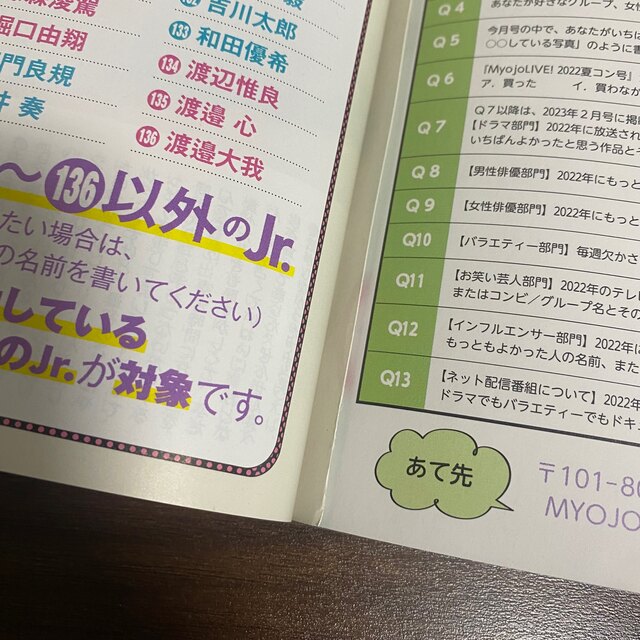 堀口由翔
門良規
井 奏
吉川太郎
133 和田優希
134 渡辺惟良
135 渡邉 心
136 渡邉大我
～136以外のJr.
たい場合は、
の名前を書いてください）
している
のJr.が対象です。
Q4 あなたが好きなグループ、女性
Q5 今月号の中で、あなたがいちば
○○している写真」のように書
Q6 「MyojoLIVE! 2022夏コン号」
ア．買った イ．買わなか
Q7 Q7以降は、2023年2月号に掲
【ドラマ部門】2022年に放送され
いちばんよかったと思う作品とそ
Q8 【男性俳優部門】2022年にもっと
Q9 【女性俳優部門】2022年にもっと
Q10 【バラエティー部門】毎週欠かさ
Q11 【お笑い芸人部門】2022年のテレ
またはコンビ／グループ名とその
Q12 【インフルエンサー部門】2022年に
もっともよかった人の名前、また
Q13 【ネット配信番組について】2022年
ドラマでもバラエティーでもドキュ
あて先
〒101-80
MYOJO